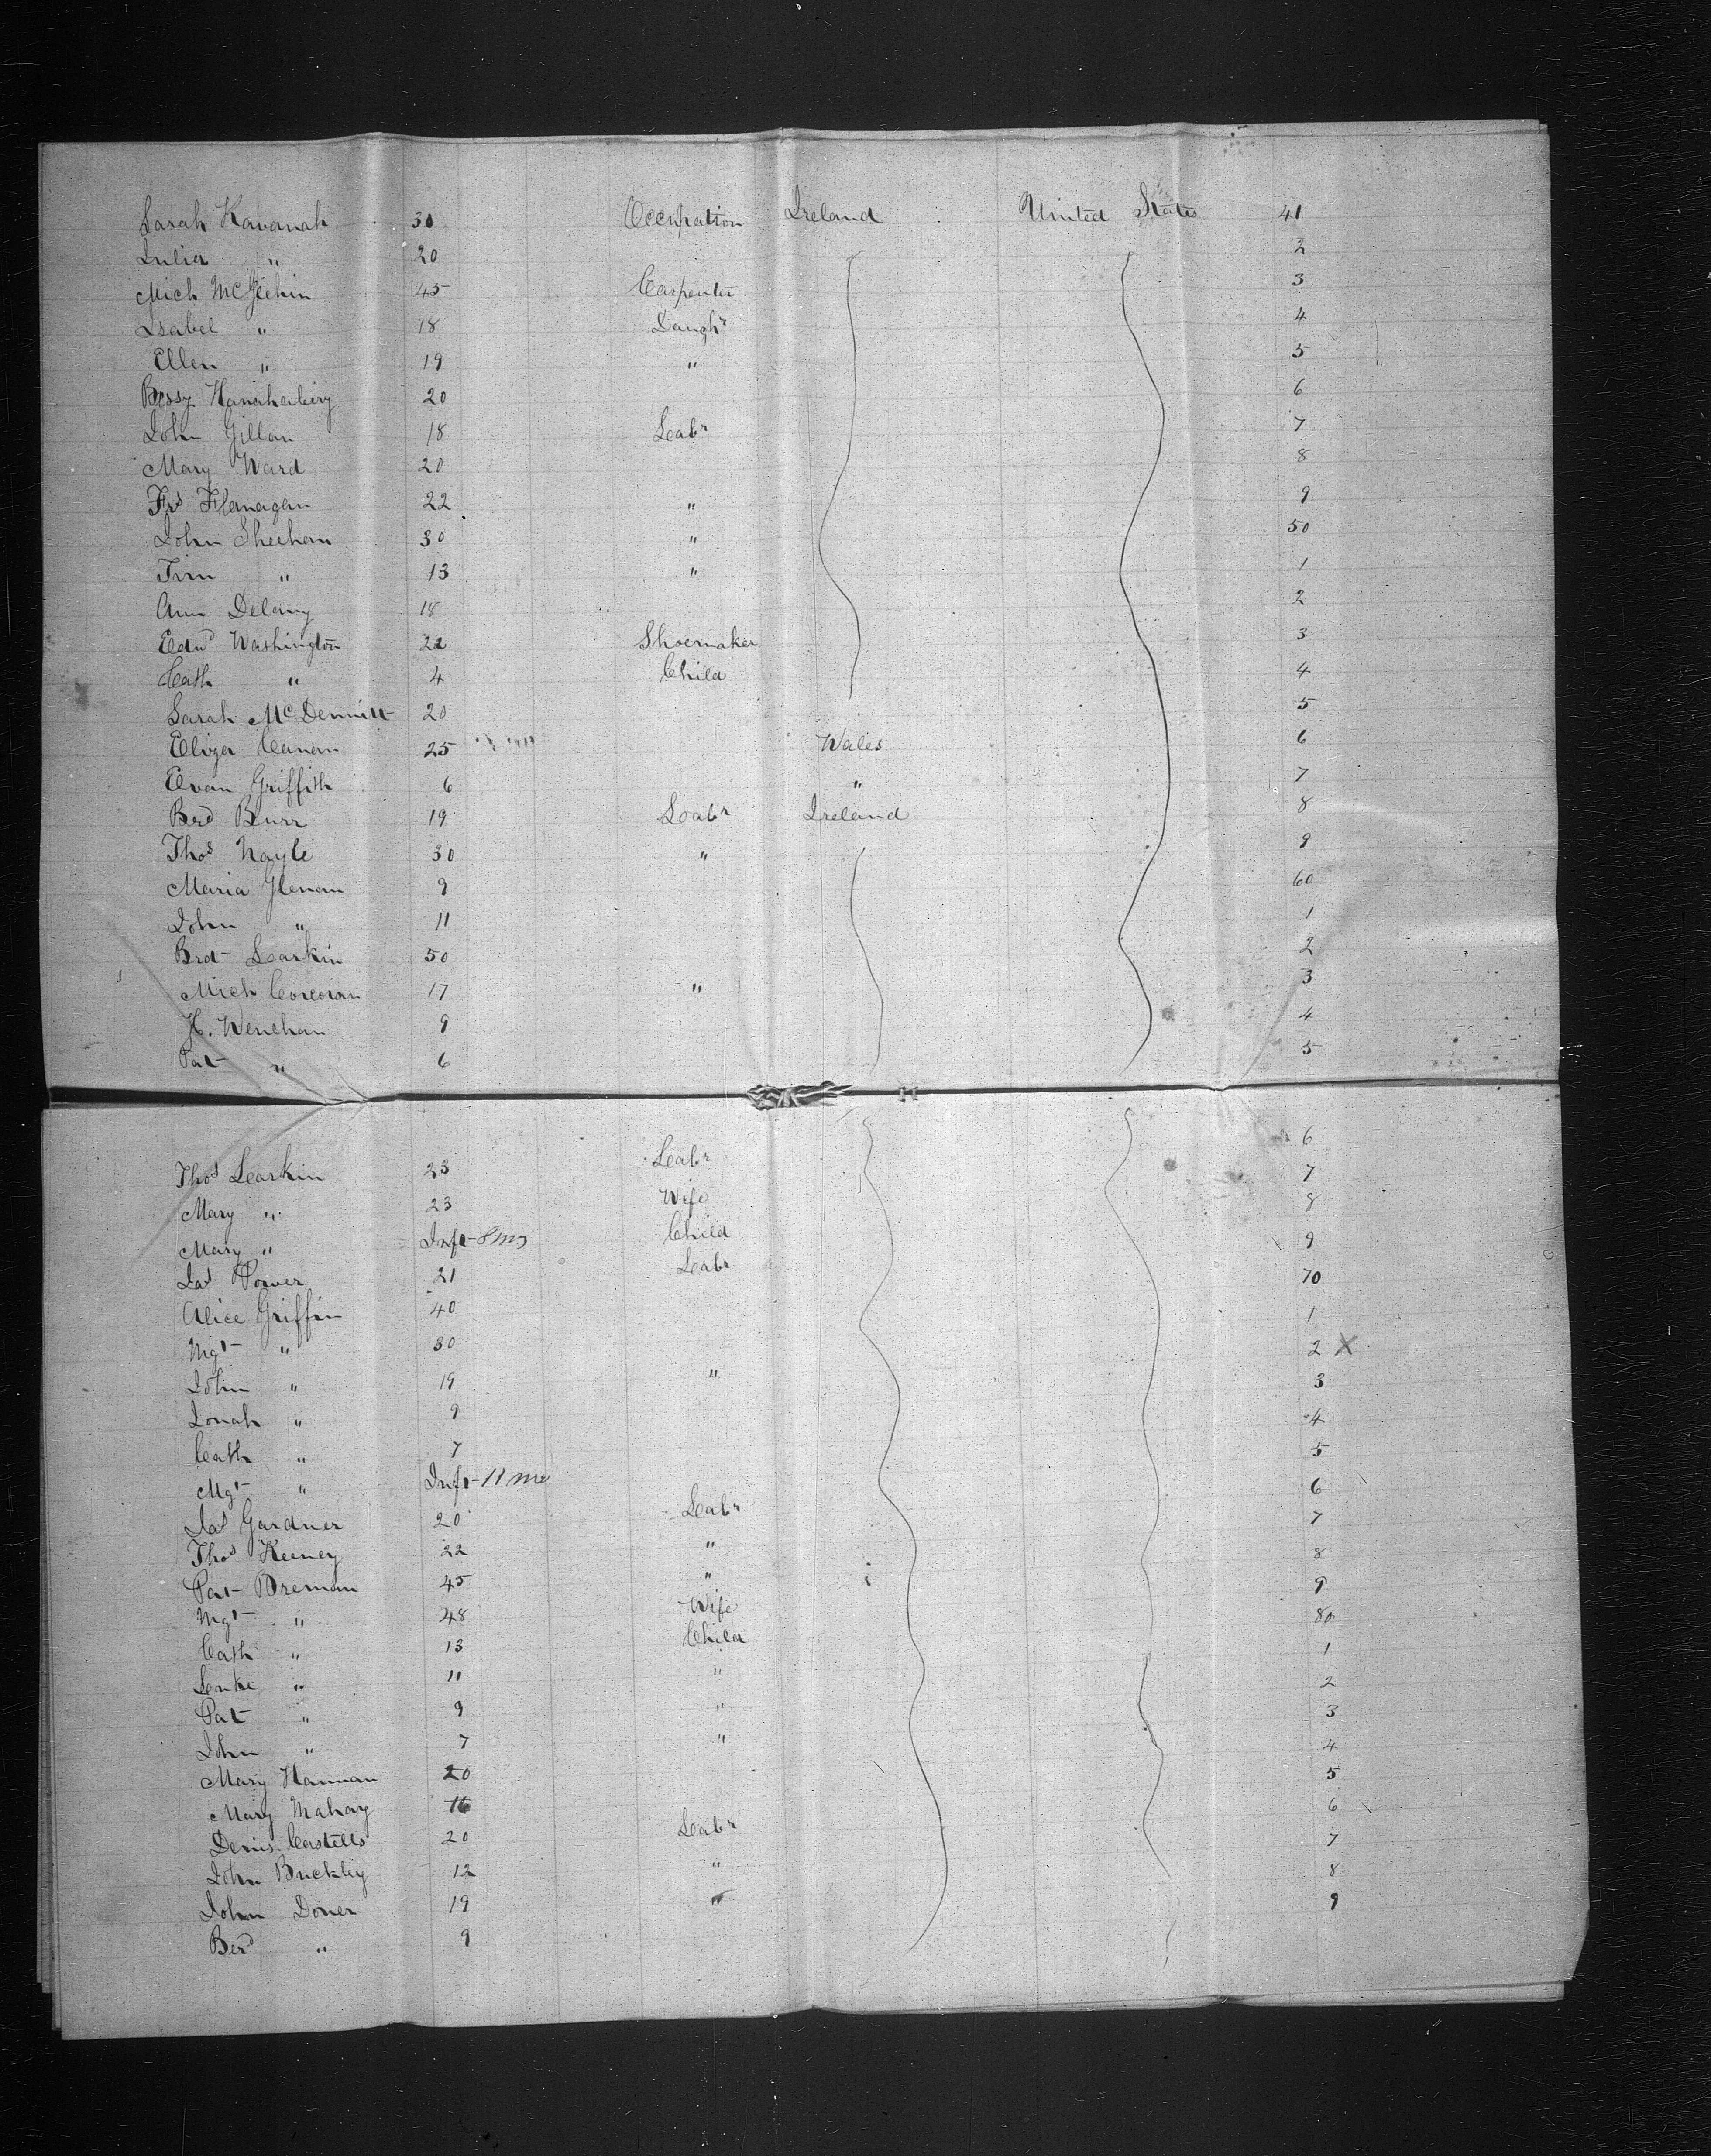 Sarah Kavanah 30 Occupation Ireland United States 41
Julia " 20 2
Mich McGechin 45 Carpenter 3
Isabel " 18 Daughr 4
Ellen " 19 " 5
Bessy 20 6
John Gillan 18 Labr 7
Mary Ward 20 8
Frs Flanagan 22 " 9
John Sheehan 30 " 50
Tim " 13 " 1
Ann Delany 18 2
Edwd Washington 22 Shoemaker 3
Cath " 4 Child 4
Sarah McDermitt 20 5
Eliza Canan 25 Wales 6
Evan Griffith 6 " 7
Berd Burr 19 Labr Ireland 8
Thos Nayle 30 " 9
Maria Glenan 9 60
John " 11 1
Brdt Larkin 50 2
Mich Corcoran 17 " 3
H. Wenehan 9 4
Pat " 6 5
Thos Larkin 23 Labr 6
Mary " 23 Wife 7
Mary " Inft 8 ms Child 8
Jas Power 21 Labr 9
Alice Griffin 40 70
Mgt " 30 1
John " 19 " 2 X
Jonah " 9 3
Cath " 7 4
Mgt " Inft 11 ms 5
Jas Gardner 20 Labr 6
Thos Keeney 22 " 7
Pat Brenan 45 " 8
Mgt " 48 Wife 9
Cath " 13 Child 80
Luke " 11 " 1
Pat " 9 " 2
John " 7 " 3
Mary Hannan 20 4
Mary Mahay 16 5
Denis Castells 20 Labr 6
John Buckley 12 " 7
John Doner 19 " 8
Berd " 9 9